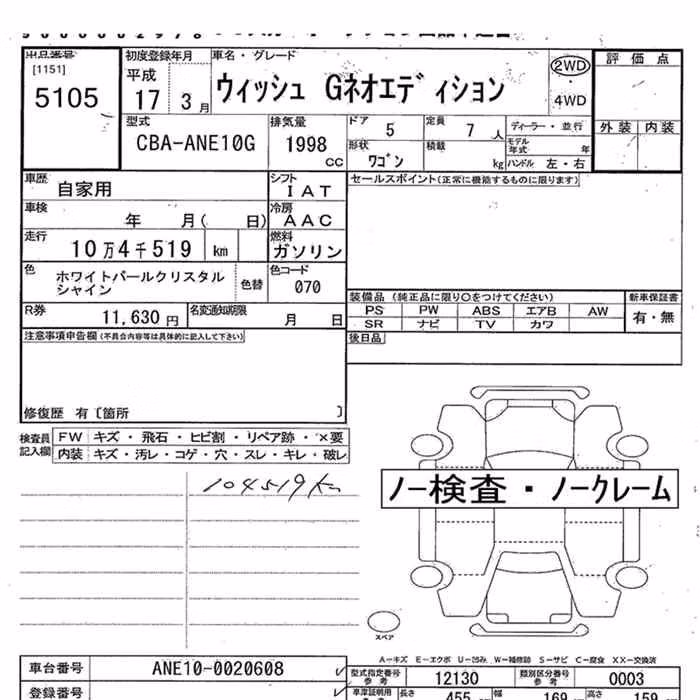 出品番号 初度登録年月 車名・グレード 評価点
[1151] 平成 2WD
5105 17 3月 ウィッシュ Gネオエディション ・4WD
型式 排気量 ドア 5 定員 7 人 ディーラー・並行 外装 内装
CBA-ANE10G 1998 CC 形状 ワゴン 積載 kg モデル年式 年
ハンドル 左・右
車歴 自家用 シフト IAT セールスポイント(正常に機能するものに限ります)
車検 年 月( 日) 冷房 AAC
走行 10万4千519 km 燃料 ガソリン
色 ホワイトパールクリスタルシャイン 色替 色コード 070
装備品 (純正品に限り○をつけてください) 新車保証書
R券 11,630 円 名変通知期限 月 日 PS PW ABS エアB AW 有・無
SR ナビ TV カワ
注意事項申告欄(不具合内容等は具体的に記入して下さい) 後日品
修復歴 有〔箇所 〕
検査員記入欄 FW キズ・飛石・ヒビ割・リペア跡・×要
内装 キズ・汚レ・コゲ・穴・スレ・キレ・破レ
104519km
ノー検査・ノークレーム
スペア
A-キズ E-エクボ U-凹み W-補修跡 S-サビ C-腐食 XX-交換済
車台番号 ANE10-0020608 型式指定番号 参考 12130 類別区分番号 参考 0003
登録番号 車庫証明用 参考 長さ 455 幅 169 高さ 159